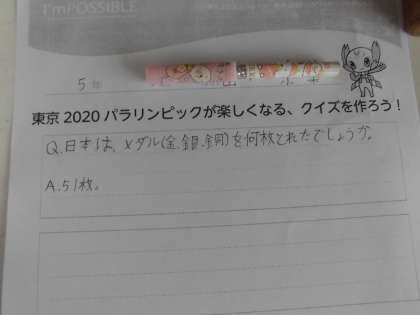 I'mPOSSIBLE
5年
東京2020パラリンピックが楽しくなる、クイズを作ろう!
Q.日本は、メダル(金.銀.銅)を何枚とれたでしょうか。
A.51枚。